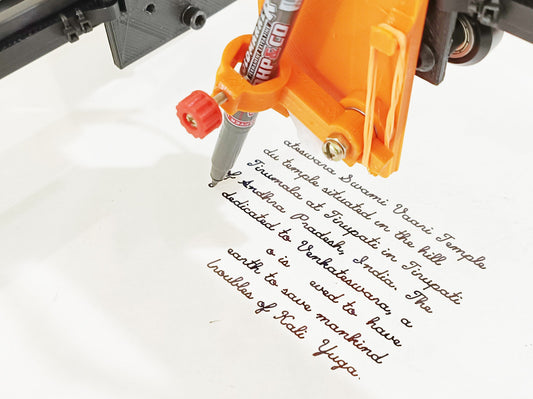 ateswara Swami Vaari Temple
du temple situated in the hill
Tirumala at Tirupati in Tirupati
f Andhra Pradesh, India. The
dedicated to Venkateswara, a
o is eved to have
earth to save mankind
troubles of Kali Yuga.
HP&CD